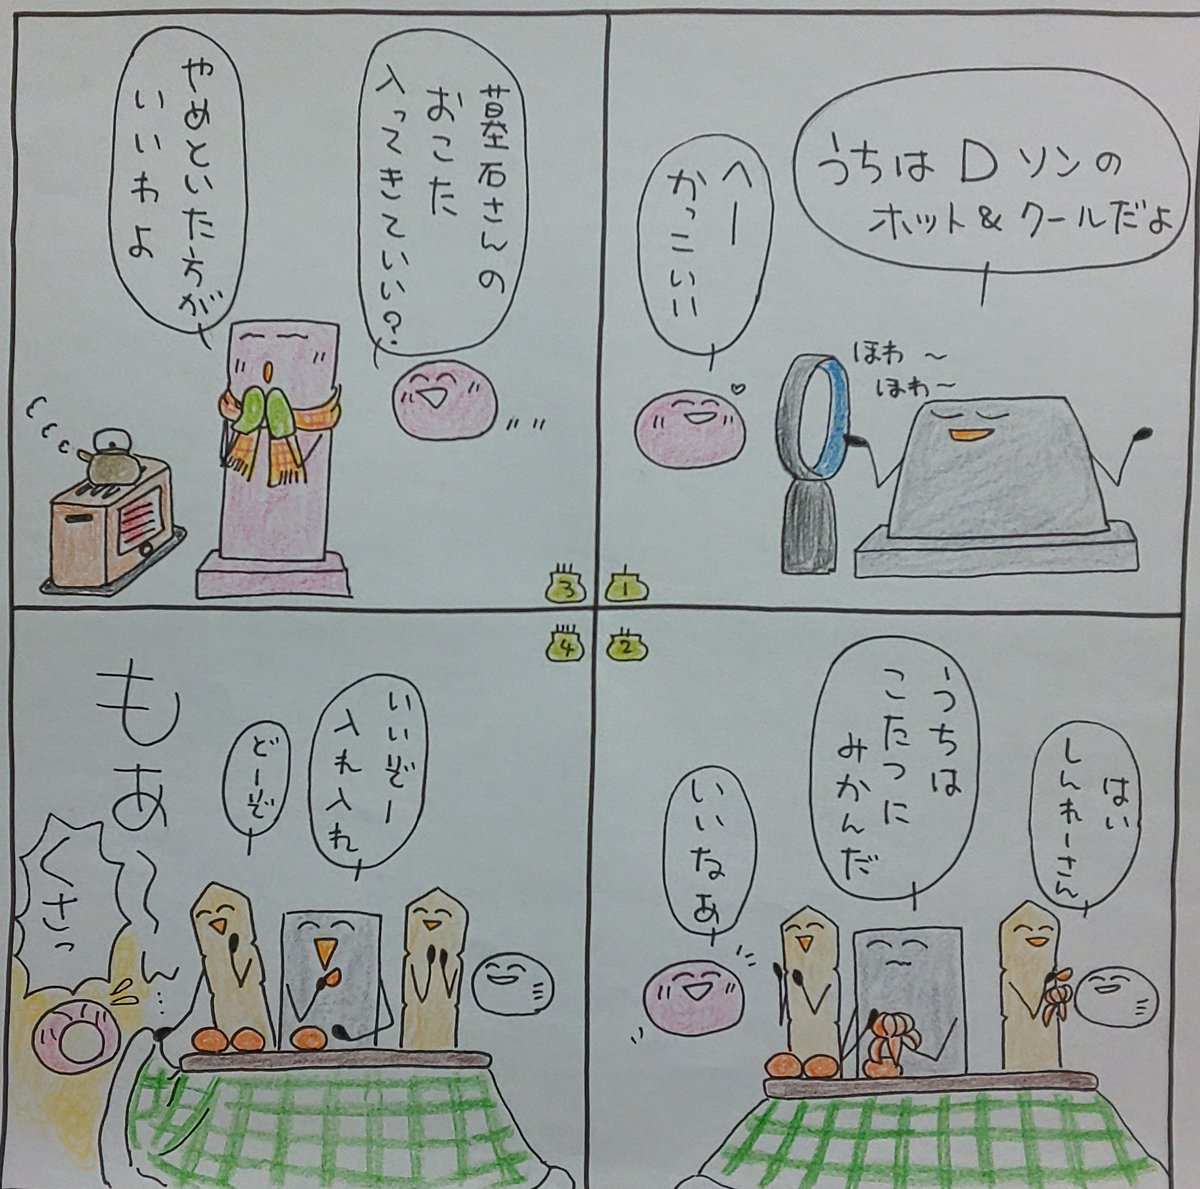 うちは D ソンの
ホット&クールだよ
へー
かっこいい
ほわ~
ほわ~
1
2
はい
しんれーさん
うちは
こたつに
みかんだ
いいなぁ
墓石さんの
おこた
入ってきていい?
やめといた方が
いいわよ
3
4
いいぞー
入れ入れ
どーぞ
もあ~~ん…
くさっ